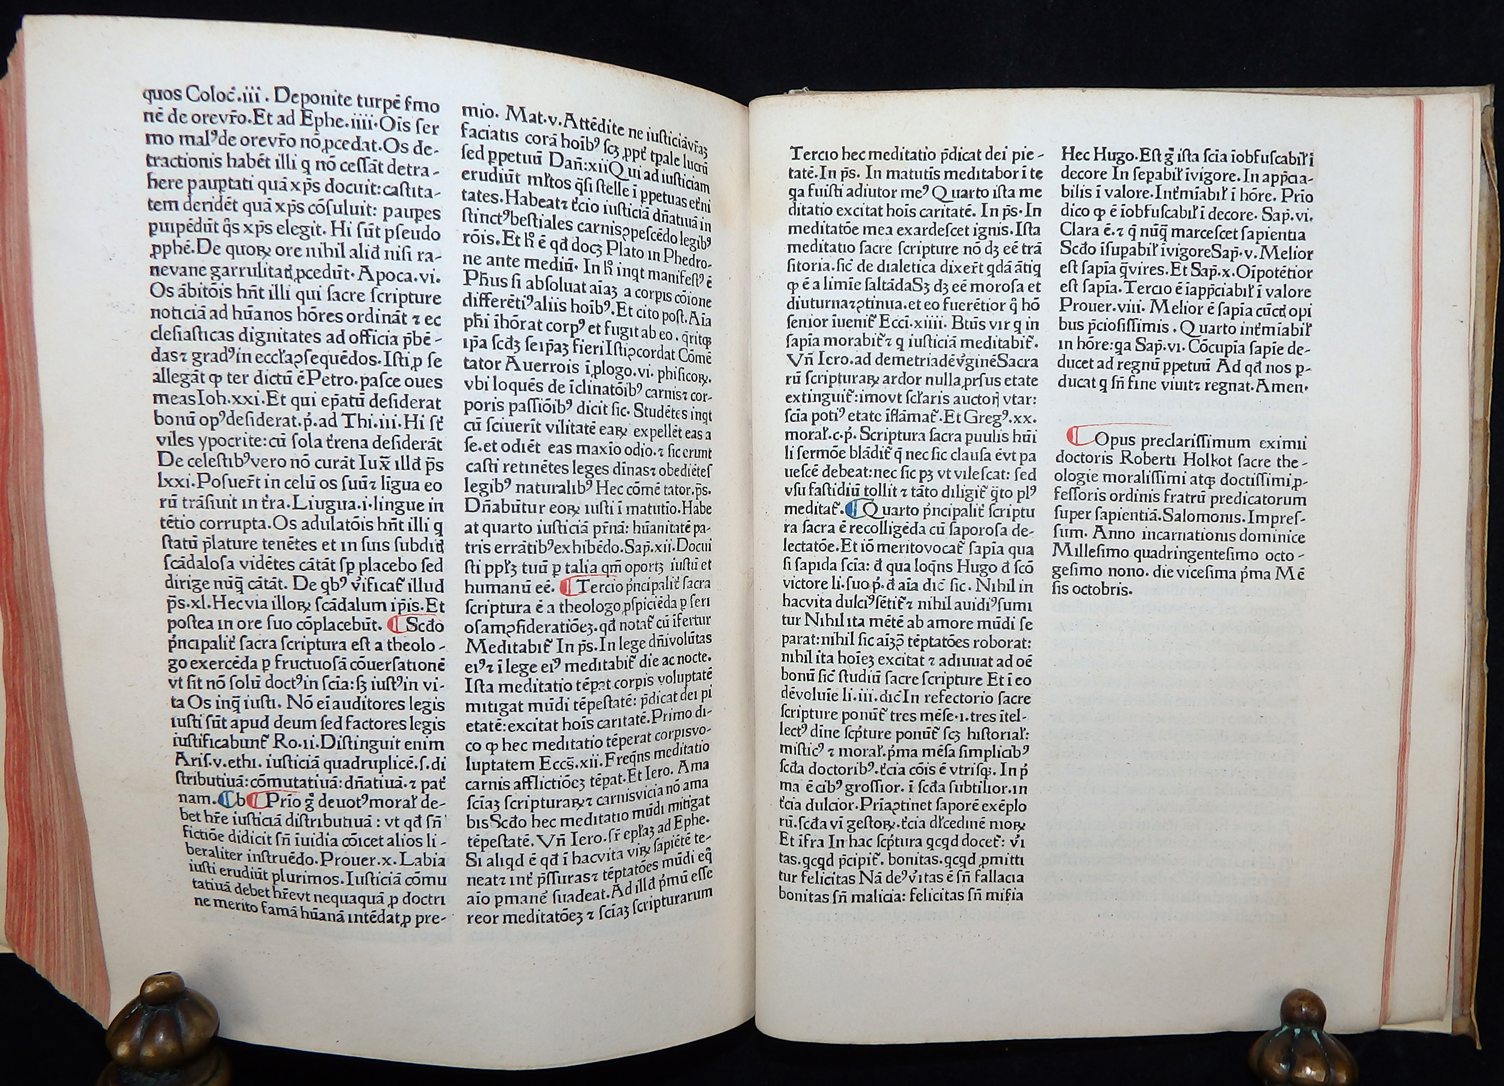 quos Coloc̄.iii. Deponite turpē ẜmo
nē de orevr̄o.Et ad Ephe.iiii.Oīs ſer
mo malꝰde orevr̄o nō ꝓcedat.Os de-
tractionis habēt illi q nō ceſſāt detra-
here paupertati quā xp̄s docuit: caſtita-
tem deridēt quā xp̄s cōſuluit: paupes
q̄s xp̄s elegit. Hi ſūt pſeudo
ꝓphē.De quoꝝ ore nihil aliđ niſi ra-
nevane ꝓcedūt.Apoca.vi.
Os hn̄t illi qui ſacre ſcripture
noticiā ad hūanos hōres ordināt ⁊ ec
cleſiaſticas dignitates ad officia p̄bē-
das⁊ gradꝰin ꝓſequēdos.Iſti ꝓ ſe
allegāt ꝙ ter dictū ē Petro.paſce oues
meas Ioh.xxi.Et qui ep̄atū deſiderat
bonū opꝰdeſiderat.p̄.ad Thi.iii.Hi ſt̄
viles ypocrite:cū ſola t̄rena deſiderāt
De celeſtibꝰvero nō curāt Iux̄ illđ p̄s
lxxi.Poſuer̄t in celū os ſuū⁊ līgua eo
rū trāſiuit in t̄ra.Liugua.i.lingue in
tētio corrupta.Os adulatōis hn̄t illi q
ſtatū p̄lature tenētes et in ſuis ſubdit̄
ſcādaloſa vidētes cātāt ſp placebo ſed
dirige nūq̄ cātāt. De qbꝰ v̄ificat̄ illud
p̄s.xl.Hec via illoꝝ ſcādalum ip̄is.Et
poſtea in ore ſuo cōplacebūt. ¶ Scđo
p̄ncipalit̄ ſacra ſcriptura eſt a theolo-
go exercēda ꝑ fructuoſā cōuerſationē
vt ſit nō ſolū doctꝰin ſcīa:ſꝫ iuſtꝰin vi-
ta Os inq̄ iuſti. Nō ei auditores legis
iuſti ſūt apud deum ſed factores legis
iuſtificabunt̄ Ro.ii.Diſtinguit enim
Ariſ.v.ethi. iuſticiā quadruplicē.ſ.di
ſtributiuā:cōmutatiuā:dn̄atiuā.⁊ pat̄
nam.¶b¶ Prīo g̊ deuotꝰmoral̄ de-
bet hr̄e iuſticiā diſtributiuā : vt qđ ſn̄
fictiōe didicit ſn̄ iuidia cōicet alios li-
beraliter inſtruēdo.Prouer.x.Labia
iuſti erudiūt plurimos.Iuſticiā cōmu
tatiuā debet hr̄evt nequaquā ꝓ doctri
ne merito famā hūanā intēdat ꝓ pre-
mio. Mat.v.Attēdite ne iuſticiāvr̄aꝫ
faciatis corā hoībꝰ ſcꝫ ꝓpt̄ tp̄ale lucrū
ſed ppetuū Dan̄:xii Qui ad iuſticiam
erudiūt ml̄tos qſi ſtelle i ppetuas et̄ni
tates.Habeat⁊ t̄cio iuſticiā dn̄atiuā in
ſtinctꝰbeſtiales carnis ꝯpeſcēdo legibꝰ
rōis.Et hͥ ē qđ docꝫ Plato in Phedro-
ne ante mediū. In hͥ inqt manifeſtꝰ ē
Ph̄us ſi abſoluat aīaꝫ a corpis cōione
differētiꝰaliis hoībꝰ.Et cito poſt.Aīa
phī īhōrat corpꝰ et fugit ab eo.
ip̄a ſcđꝫ ſeip̄aꝫ fieri Iſti ꝯcordat Cōmē
tator Auerrois i ꝓlogo.vi.phiſicoꝝ.
vbi loquēs de īclinatōibꝰ carnis⁊ cor-
poris paſſiōibꝰ dicit ſic. Studētes inqt
cū ſciuerīt vilitatē eaꝝ expellēt eas a
ſe.et odiēt eas maxio odio.⁊ ſic erunt
caſti retinētes leges dīnas⁊ obediētes
legibꝰ naturalibꝰ Hec cōmētator.p̄s.
Dn̄abūtur eoꝝ iuſti i matutio.Habe
at quarto iuſticiā p̄nā: hūanitatē pa-
tris errātibꝰexhibēdo.Sap.xii.Docui
ſti ppl̄ꝫ tuū ꝑ talia qm̄ oportꝫ iuſtū et
humanū eē. ¶ Tercio p̄ncipalit̄ ſacra
ſcriptura ē a theologo ꝑſpiciēda ꝑ ſeri
oſamꝯſideratiōeꝫ.qđ notat̄ cū īfertur
Meditabit̄ In p̄s.In lege dn̄i volūtas
eiꝰ⁊ i lege eiꝰ meditabit̄ die ac nocte.
Iſta meditatio tēpat corpis voluptatē
mitigat mūdi tēpeſtatē: p̄dicat dei pi
etatē:excitat hoīs caritatē.Primo di-
co ꝙ hec meditatio tēperat corpisvo-
luptatem Eccs̄.xii.Freqn̄s meditatio
carnis afflictiōeꝫ tēpat.Et Iero. Ama
ſcīaꝫ ſcripturaꝝ⁊ carnisvicia nō ama
bis Scđo hec meditatio mūdi mitigat
tēpeſtatē. Vn̄ Iero.ſr̄ ep̄laꝫ ad Ephe.
Si aliqđ ē qđ i hacvita virꝫ ſapiētē te-
neat⁊ int̄ p̄ſſuras⁊ tēptatōes mūdi eq̄
aīo pmanē ſuadeat.Ad illđ p̄mū eſſe
reor meditatōeꝫ ⁊ ſcīaꝫ ſcripturarum
Tercio hec meditatio p̄dicat dei pie-
tatē.In p̄s. In matutis meditabor i te
qa fuiſti adiutor meꝰ Quarto iſta me
ditatio excitat hoīs caritatē. In p̄s.In
meditatōe mea exardeſcet ignis.Iſta
meditatio ſacre ſcripture nō dꝫ eē trā
ſitoria.ſic̄ de dialetica dixer̄t qdā ātiq
ꝙ ē a limīe ſaltādaSꝫ dꝫ eē moroſa et
diuturna⁊ꝯtinua.et eo fueretior q̄ hō
ſenior iuenit̄ Ecci.xiiii. Btūs vir q in
ſapia morabit̄⁊ q iuſticiā meditabit̄.
Vn̄ Iero.ad demetriadēv̄ginē Sacra
rū ſcripturaꝝ ardor nulla ꝓrſus etate
extinguit̄:imovt ſcl̄aris auctorꝭ vtar:
ſcīa potiꝰ etate īflāmat̄.Et Gregꝰ.xx.
moral̄.c.p̄. Scriptura ſacra puulis hūi
li ſermōe blādit̄ q nec ſic clauſa ē vt pa
ueſcē debeat:nec ſic pꝫ vt vileſcat: ſed
vſu faſtidiū tollit ⁊ tāto diligit̄ q̄to plꝰ
meditat̄. ¶ Quarto p̄ncipalit̄ ſcriptu
ra ſacra ē recolligēda cū ſaporoſa de-
lectatōe.Et iō meritovocat̄ ſapia qua
ſi ſapida ſcīa: đ qua loqn̄s Hugo đ ſcō
victore li.ſuo p̄.đ aīa dic̄ ſic. Nihil in
hacvita dulciꝰſētit̄⁊ nihil auidiꝰſumi
tur Nihil ita mētē ab amore mūdi ſe
parat:nihil ſic aīaꝫꝯ tēptatōes roborat:
nihil ita hoīeꝫ excitat ⁊ adiuuat ad oē
bonū ſic̄ ſtudiū ſacre ſcripture Et i eo
dēvoluīe li.iii.dic̄ In refectorio ſacre
ſcripture ponūt̄ tres mēſe.ı.tres ītel-
lectꝰ dīne ſcp̄ture ponūt̄ ſcꝫ hiſtorial̄:
miſticꝰ ⁊ moral̄.p̄ma mēſa ſimplicibꝰ
ſcđa doctoribꝰ.t̄cia cōis ē vtriſqꝫ. In p̄
ma ē cibꝰ groſſior. i ſcđa ſubtilior.in
t̄cia dulcior.Pria ꝯtinet ſaporē exēplo
rū.ſcđa vī geſtoꝝ.t̄cia dl̄cedinē moꝝ
Et īfra In hac ſcp̄tura qcqđ docet̄: vī
tas.qcqđ p̄cipit̄. bonitas.qcqđ ꝓmitti
tur felicitas Nā deꝰv̄itas ē ſn̄ fallacia
bonitas ſn̄ malicia: felicitas ſn̄ mīſia
Hec Hugo.Eſt g̊ iſta ſcīa īobfuſcabil̄ i
decore In ſepabil̄ ivigore.In appc̄ia-
bilis i valore.Int̄miabil̄ i hōre. Prio
dico ꝙ ē īobfuſcabil̄ i decore. Sap̄.vi.
Clara ē.⁊ q nūq̄ marceſcet ſapientia
Scđo iſupabil̄ ivigoreSap̄.v.Melior
eſt ſapīa q̄vires.Et Sap̄.x.Oīpotētior
eſt ſapia.Tercio ē iappc̄iabil̄ i valore
Prouer.viii. Melior ē ſapīa cūct̄ opi
bus p̄cioſiſſimis . Quarto int̄miabil̄
in hōre:qa Sap̄.vi.Cōcupīa ſapīe de-
ducet ad regnū ppetuū Ad qđ nos p-
ducat q ſn̄ fine viuit⁊ regnat.Amen.
¶ Opus preclariſſimum eximii
doctoris Roberti Holkot ſacre the-
ologie moraliſſimi atqꝫ doctiſſimi,ꝓ-
feſſoris ordinis fratrū predicatorum
ſuper ſapientiā.Salomonis. Impreſ-
ſum. Anno incarnationis dominice
Milleſimo quadringenteſimo octo-
geſimo nono. die viceſima p̄ma Mē
ſis octobris.